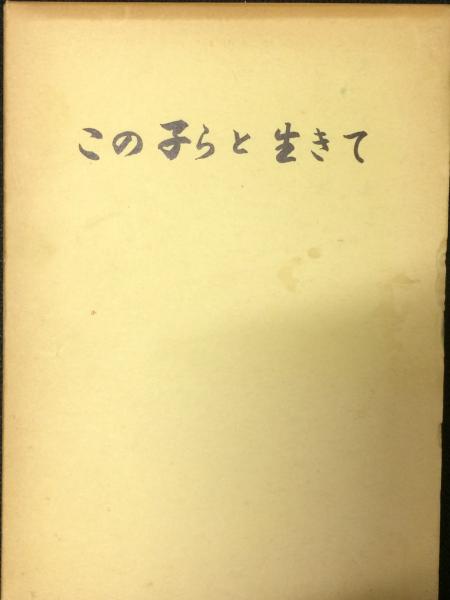 この子らと生きて